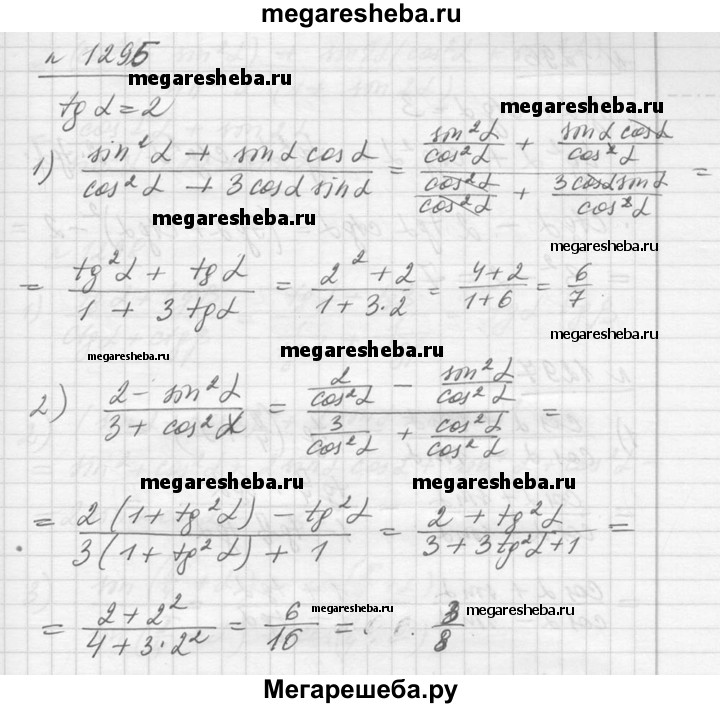 megaresheba.ru
n 1295
megaresheba.ru
tg α = 2
megaresheba.ru
1) (sin²α + sinα cosα)/(cos²α + 3cosα sinα) = (sin²α/cos²α + sinα cosα/cos²α)/(cos²α/cos²α + 3cosα sinα/cos²α) =
megaresheba.ru
megaresheba.ru
= (tg²α + tgα)/(1 + 3tgα) = (2² + 2)/(1 + 3·2) = (4 + 2)/(1 + 6) = 6/7
megaresheba.ru
megaresheba.ru
megaresheba.ru
2) (2 - sin²α)/(3 + cos²α) = (2/cos²α - sin²α/cos²α)/(3/cos²α + cos²α/cos²α) =
megaresheba.ru
megaresheba.ru
= (2(1 + tg²α) - tg²α)/(3(1 + tg²α) + 1) = (2 + tg²α)/(3 + 3tg²α + 1) =
megaresheba.ru
megaresheba.ru
= (2 + 2²)/(4 + 3·2²) = 6/16 = 3/8
Мегарешеба.ру